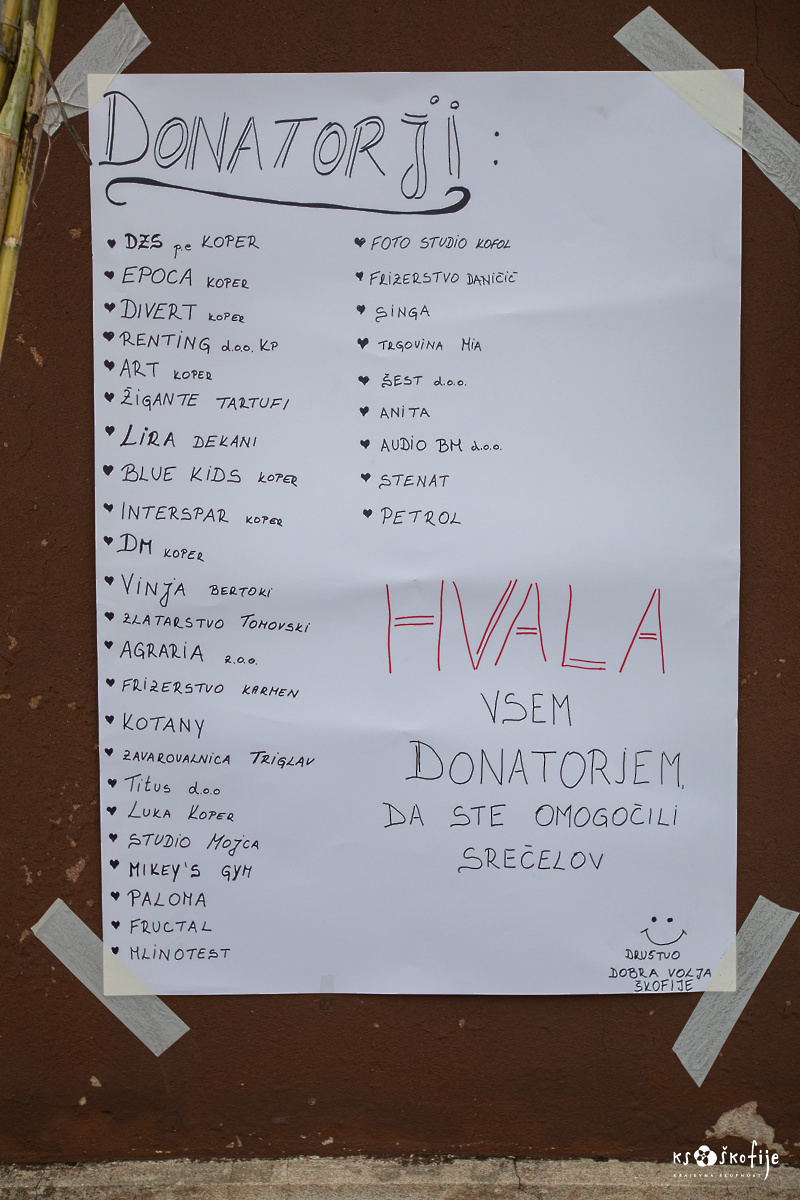 DONATORJI:
♥ DZS pe KOPER
♥ EPOCA KOPER
♥ DIVERT KOPER
♥ RENTING d.o.o. KP
♥ ART KOPER
♥ ŽIGANTE TARTUFI
♥ LIRA DEKANI
♥ BLUE KIDS KOPER
♥ INTERSPAR KOPER
♥ DM KOPER
♥ VINJA BERTOKI
♥ ZLATARSTVO TOMOVSKI
♥ AGRARIA z.o.o.
♥ FRIZERSTVO KARMEN
♥ KOTANY
♥ ZAVAROVALNICA TRIGLAV
♥ Titus d.o.o
♥ LUKA KOPER
♥ STUDIO MOJCA
♥ MIKEY'S GYM
♥ PALOMA
♥ FRUCTAL
♥ MLINOTEST
♥ FOTO STUDIO KOFOL
♥ FRIZERSTVO DANIČIČ
♥ SINGA
♥ TRGOVINA MIA
♥ ŠEST d.o.o.
♥ ANITA
♥ AUDIO BM d.o.o.
♥ STENAT
♥ PETROL
HVALA
VSEM
DONATORJEM,
DA STE OMOGOČILI
SREČELOV
DRUŠTVO
DOBRA VOLJA
ŠKOFIJE
KS škofije
KRAJEVNA SKUPNOST